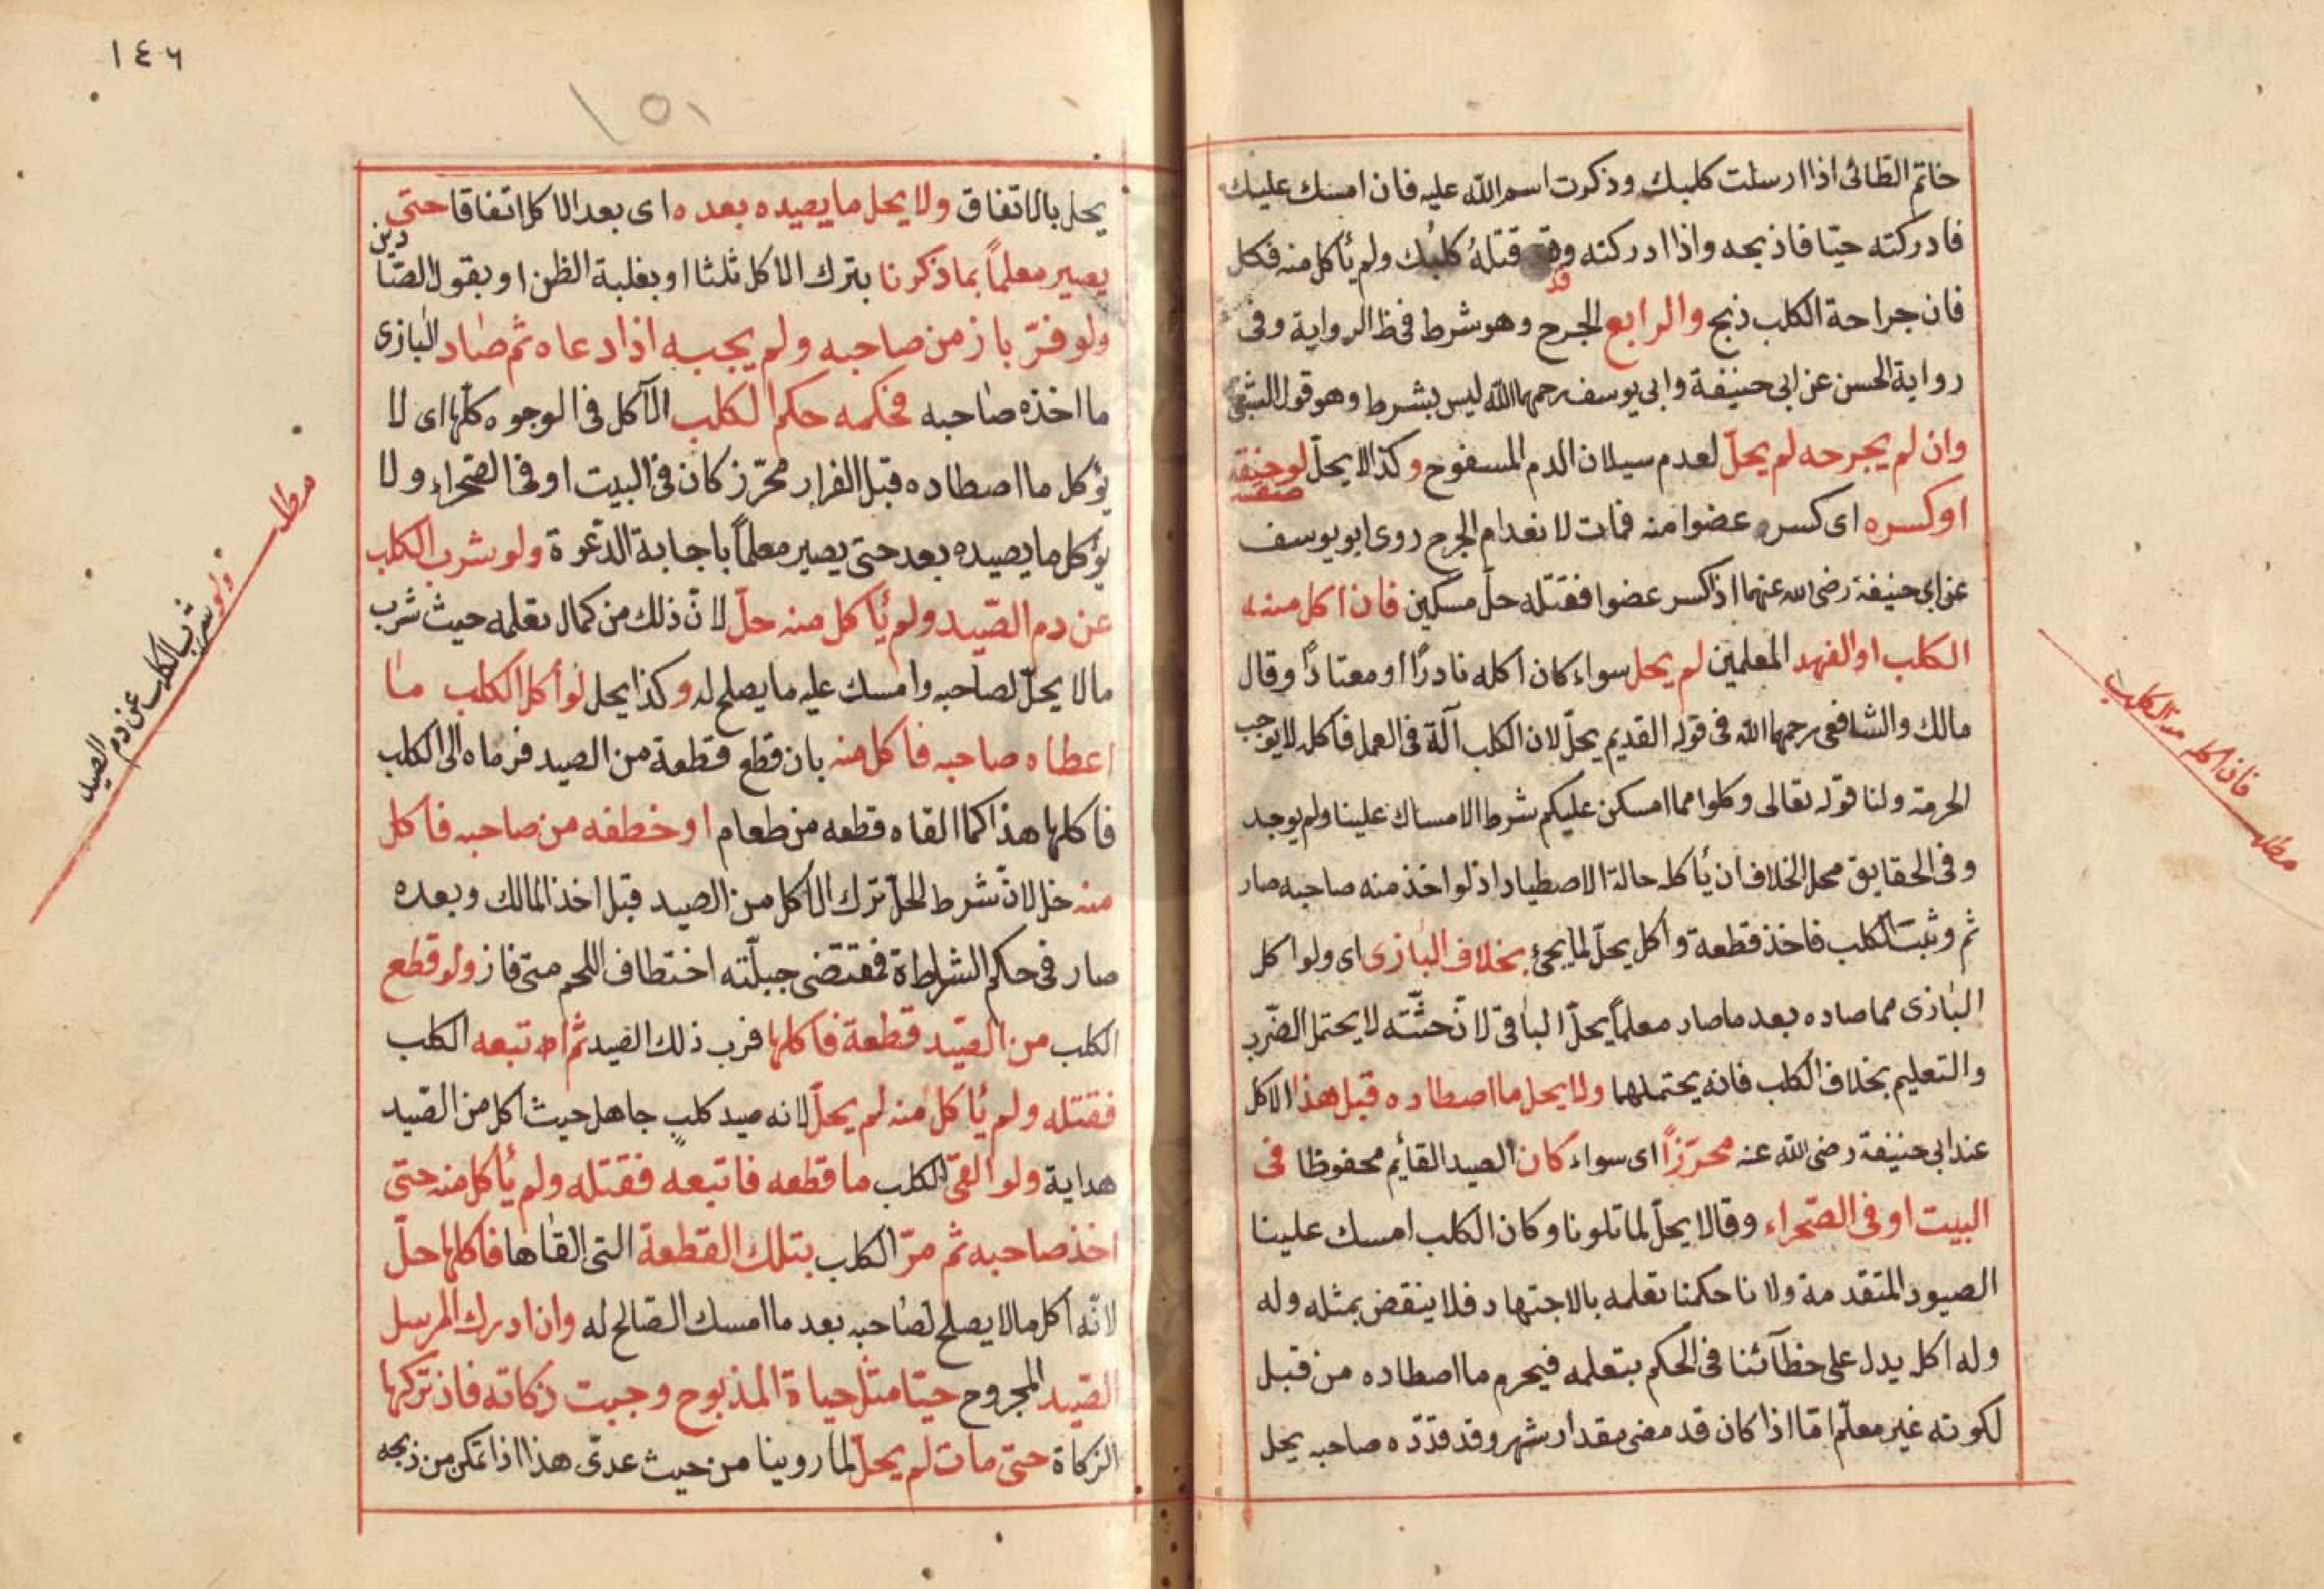 خاتم الطائى اذا ارسلت كلبك وذكرت اسم الله عليه فان امسك عليك
فادركته حيّا فاذبحه واذا ادركته وقد قتله كلبك ولم يأكل منه فكل
فان جراحة الكلب ذبح والرابع الجرح وهو شرط فى ظ الرواية وفى
رواية الحسن عن ابى حنيفة وابى يوسف رحمهما الله ليس بشرط وهو قول الشعبى
وان لم يجرحه لم يحلّ لعدم سيلان الدم المسفوح وكذا لا يحلّ لو خنقه
او كسره اى كسر عضوا منه فمات لانعدام الجرح روى ابو يوسف
عن ابى حنيفة رضى الله عنهما اذ اكسر عضوا فقتله حلّ مسكين فان اكل منه
الكلب او الفهد المعلمين لم يحل سواء كان اكله نادرًا او معتادًا وقال
مالك والشافعى رحمهما الله فى قوله القديم يحلّ لان الكلب آلة فى العمل فاكله لا يوجب
الحرمة ولنا قوله تعالى وكلوا مما امسكن عليكم شرط الامساك علينا ولم يوجد
وفى الحقايق محل الخلاف ان يأكله حالة الاصطياد اذ لو اخذ منه صاحبه صار
ثم وثبت الكلب فاخذ قطعة واكل يحلّ لما يجئ بخلاف البازى اى ولو اكل
البازى مما صاده بعد ما صار معلماً يحلّ الباقى لانّ جثّته لا يحتمل الضّرب
والتعليم بخلاف الكلب فانه يحتملهما ولا يحل ما اصطاده قبل هذا الاكل
عند ابى حنيفة رضى الله عنه محرّزاً اى سواء كان الصيد القائم محفوظا فى
البيت او فى الصّحراء وقالا يحلّ لما تلونا وكان الكلب امسك علينا
الصيود المتقدمة ولانا حكمنا تعلمه بالاجتهاد فلا ينقض بمثله وله
وله اكل يدل على خطآئنا فى الحكم بتعلمه فيحرم ما اصطاده من قبل
لكونه غير معلّم امّا اذا كان قد مضى مقدار شهر وقد قدّده صاحبه يحل
فان اكله منه الكلب
مطلب
١٤٦
١٥١
يحل بالاتفاق ولا يحل ما يصيده بعده اى بعد الاكل اتفاقا حتى
يصير معلماً بما ذكرنا بترك الاكل ثلثا او بغلبة الظن او بقول الصيّادين
ولو فرّ باز من صاحبه ولم يجبه اذا دعاه ثم صاد البازى
ما اخذه صاحبه فحكمه حكم الكلب الآكل فى الوجوه كلّها اى لا
يؤكل ما اصطاده قبل الفرار محرّز كان فى البيت او فى الصّحراء ولا
يؤكل ما يصيده بعد حتى يصير معلماً باجابة الدّعوة ولو شرب الكلب
عن دم الصّيد ولم يأكل منه حلّ لانّ ذلك من كمال تعلمه حيث شرب
ما لا يحلّ لصاحبه وامسك عليه ما يصلح له وكذا يحل لو أكل الكلب ما
اعطاه صاحبه فاكل منه بان قطع قطعة من الصيد فرماه الى الكلب
فاكلها هذا كما القاه قطعه من طعام او خطفه من صاحبه فاكل
منه حل لانّ شرط الحلّ ترك الاكل من الصيد قبل اخذ المالك وبعده
صار فى حكم الشاة فمقتضى جبلّته اختطاف اللحم متى فاز ولو قطع
الكلب من الصّيد قطعة فاكلها فرب ذلك الصيد ثم اتبعه الكلب
فقتله ولم يأكل منه لم يحلّ لانه صيد كلبٍ جاهل حيث اكل من الصّيد
هداية ولو القى الكلب ما قطعه فاتبعه فقتله ولم يأكل منه حتى
اخذ صاحبه ثم مرّ الكلب بتلك القطعة التى القاها فاكلها حلّ
لانّه اكل ما لا يصلح لصاحبه بعد ما امسك الصّالح له وان ادرك المرسل
الصّيد المجروح حيّا مثل حياة المذبوح وجبت زكاته فان تركها
الزكاة حتّى مات لم يحلّ لما روينا من حيث عدىّ هذا اذا تمكن من ذبحه
مطلب
ولو شرب الكلب عن دم الصيد